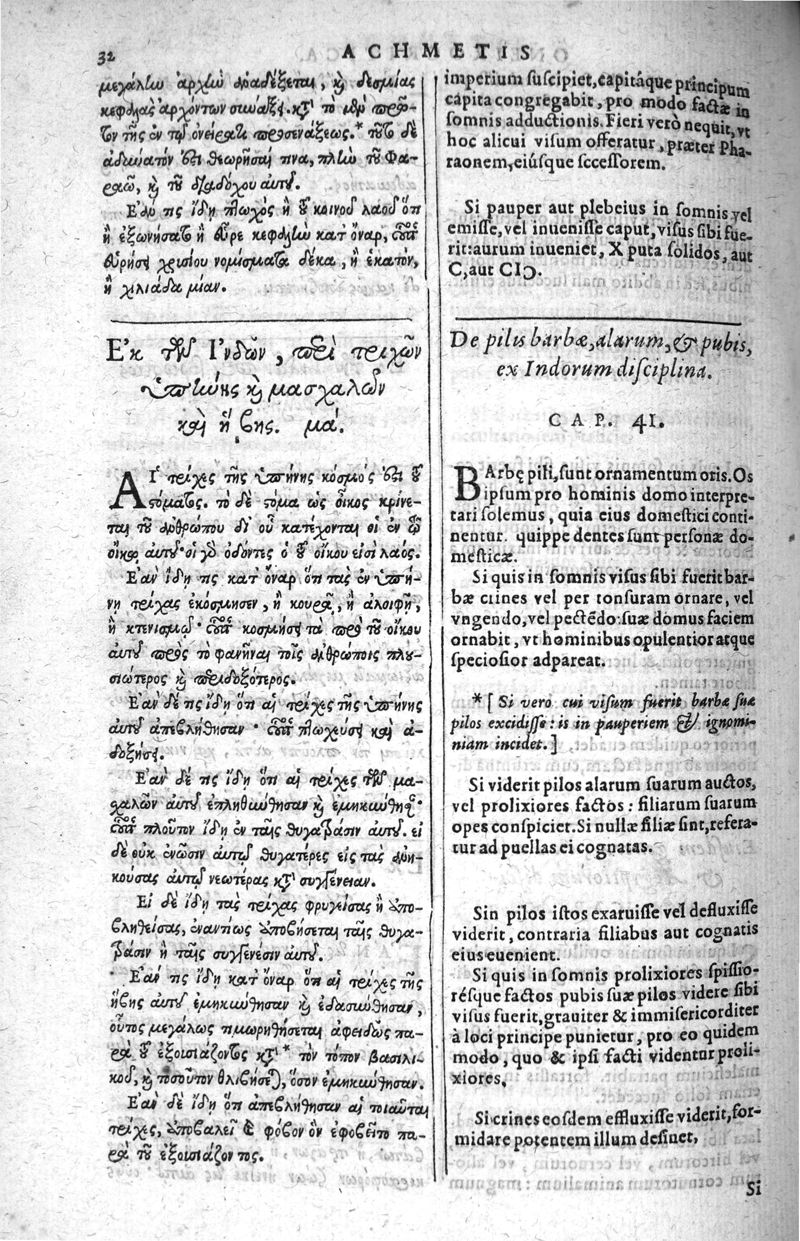 32
ACHMETIS
μεγάλην ἀρχὴν διαδέξεται, καὶ δεσμίας
κεφαλὰς ἀρχόντων συνάξει. κατὰ τὸ μέτρον
τῆς ἐν τῷ ὀνείρατι προσενάξεως.* τοῦτο δὲ
ἀδύνατόν ἐστι θεωρῆσαί τινα, πλὴν τοῦ Φα-
ραὼ, καὶ τοῦ διαδόχου αὐτοῦ.
Ἐὰν τις ἴδῃ πτωχὸς ἢ τοῦ κοινοῦ λαοῦ ὅτι
ἢ ἐξωνήσατο ἢ εὗρε κεφαλὴν κατ' ὄναρ, οὗτος
εὑρήσει χρυσίου νομίσματα δέκα, ἢ ἑκατὸν,
ἢ χιλιάδα μίαν.
Ἐκ τῶν Ἰνδῶν, περὶ τριχῶν
ὑπήνης καὶ μασχαλῶν
καὶ ἥβης. μα'.
ΑἹ τρίχες τῆς ὑπήνης κόσμός ἐστι τοῦ
στόματος. τὸ δὲ στόμα ὡς οἶκος κρίνε-
ται τοῦ ἀνθρώπου δι' οὗ κατέχονται οἱ ἐν τῷ
οἴκῳ αὐτοῦ· οἱ γὰρ ὀδόντες ὁ τοῦ οἴκου εἰσὶ λαός.
Ἐὰν ἴδῃ τις κατ' ὄναρ ὅτι τὰς ἐν ὑπή-
νῃ τρίχας ἐκόσμησεν, ἢ κουρᾷ, ἢ ἀλοιφῇ,
ἢ κτενισμῷ· οὗτος κοσμήσει τὰ πρὸ τοῦ οἴκου
αὐτοῦ πρὸς τὸ φανῆναι τοῖς ἀνθρώποις πλου-
σιώτερος καὶ περιδοξότερος.
Ἐὰν δέ τις ἴδῃ ὅτι αἱ τρίχες τῆς ὑπήνης
αὐτοῦ ἀπεβλήθησαν· οὗτος πτωχεύσει καὶ ἀ-
δοξήσει.
Ἐὰν δέ τις ἴδῃ ὅτι αἱ τρίχες τῶν μα-
χαλῶν αὐτοῦ ἐπληθύνθησαν καὶ ἐμηκύνθησαν·
οὗτος πλοῦτον ἴδῃ ἐν ταῖς θυγατράσιν αὐτοῦ. εἰ
δὲ οὐκ ἔνωσιν αὐτῷ θυγατέρες εἰς τὰς ἀνη-
κούσας αὐτῷ νεωτέρας κατὰ συγγένειαν.
Εἰ δὲ ἴδῃ τὰς τρίχας φρυγείσας ἢ ἀπο-
βληθείσας, ἐναντίως ἀποβήσεται ταῖς θυγα-
τράσιν ἢ ταῖς συγγενέσιν αὐτοῦ.
Ἐάν τις ἴδῃ κατ' ὄναρ ὅτι αἱ τρίχες τῆς
ἥβης αὐτοῦ ἐμηκύνθησαν καὶ ἐδασύνθησαν,
οὗτος μεγάλως τιμωρηθήσεται ἀφειδῶς πα-
ρὰ τοῦ ἐξουσιάζοντος κατὰ* τὸν τόπον βασιλι-
κοῦ, καὶ τοσοῦτον θλιβήσεται, ὅσον ἐμηκύνθησαν.
Ἐὰν δὲ ἴδῃ ὅτι ἀπεβλήθησαν αἱ τοιαῦται
τρίχες, ἀποβαλεῖ τὸν φόβον ὃν ἐφοβεῖτο πα-
ρὰ τοῦ ἐξουσιάζοντος.
imperium suscipiet, capitáque principum
capita congregabit, pro modo factæ in
somnis adductionis. Fieri verò nequit, vt
hoc alicui visum offeratur, præter Pha-
raonem, eiúsque sccessorem.
Si pauper aut plebeius in somnis vel
emisse, vel inuenisse caput, visus sibi fue-
rit: aurum inueniet, X puta solidos, aut
C, aut CIↃ.
De pilis barbæ, alarum, & pubis,
ex Indorum disciplina.
CAP. 41.
BArbę pili, sunt ornamentum oris. Os
ipsum pro hominis domo interpre-
tari solemus, quia eius domestici conti-
nentur. quippe dentes sunt personæ do-
mesticæ.
Si quis in somnis visus sibi fuerit bar-
bæ crines vel per tonsuram ornare, vel
vngendo, vel pectẽdo: suæ domus faciem
ornabit, vt hominibus opulentior atque
speciosior adpareat.
* [ Si vero cui visum fuerit barbæ suæ
pilos excidisse: is in pauperiem & ignomi-
niam incidet. ]
Si viderit pilos alarum suarum auctos,
vel prolixiores factos: filiarum suarum
opes conspiciet. Si nullæ filiæ sint, refera-
tur ad puellas ei cognatas.
Sin pilos istos exaruisse vel defluxisse
viderit, contraria filiabus aut cognatis
eius euenient.
Si quis in somnis prolixiores spissio-
résque factos pubis suæ pilos videre sibi
visus fuerit, grauiter & immisericorditer
à loci principe punietur, pro eo quidem
modo, quo & ipsi facti videntur proli-
xiores.
Si crines eosdem effluxisse viderit, for-
midare potentem illum desinet,
Si